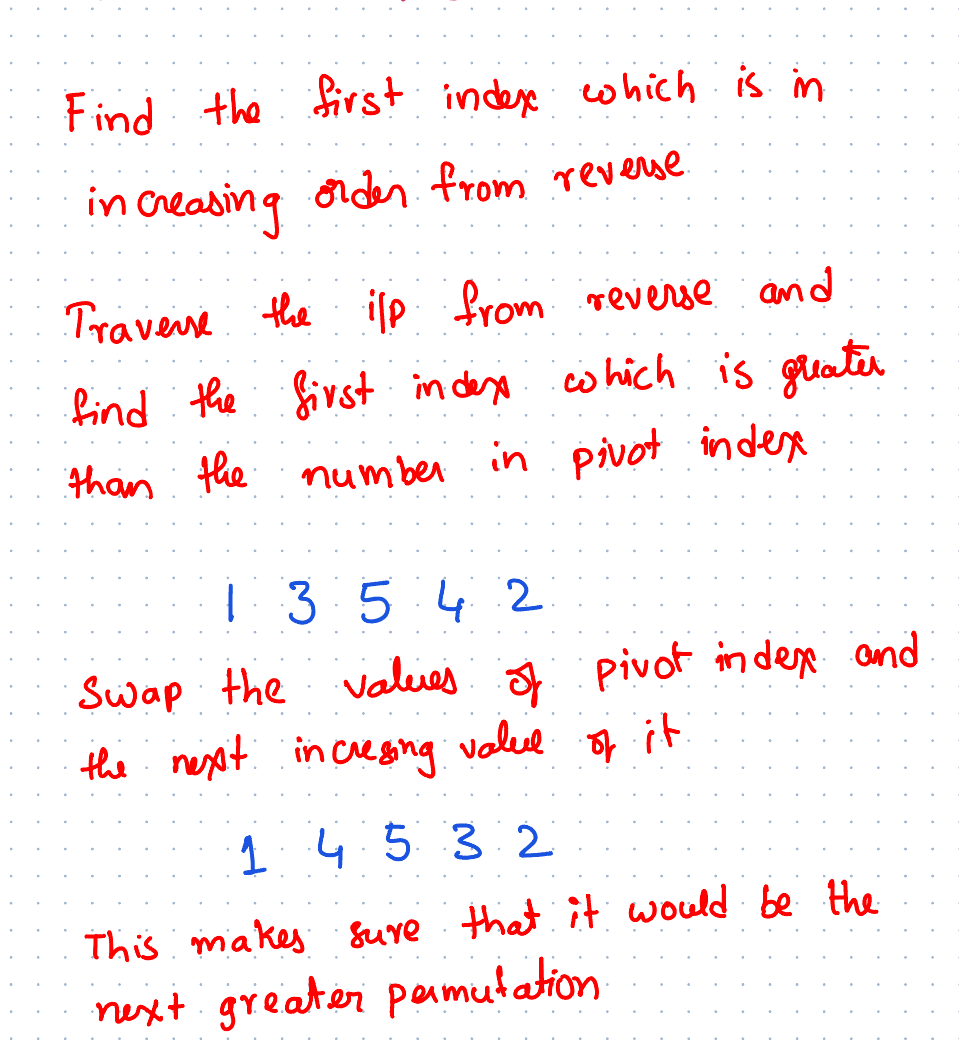 Find the first index which is in
increasing order from reverse
Traverse the i/p from reverse and
find the first index which is greater
than the number in pivot index
1 3 5 4 2
Swap the values of pivot index and
the next incresing value of it
1 4 5 3 2
This makes sure that it would be the
next greater permutation